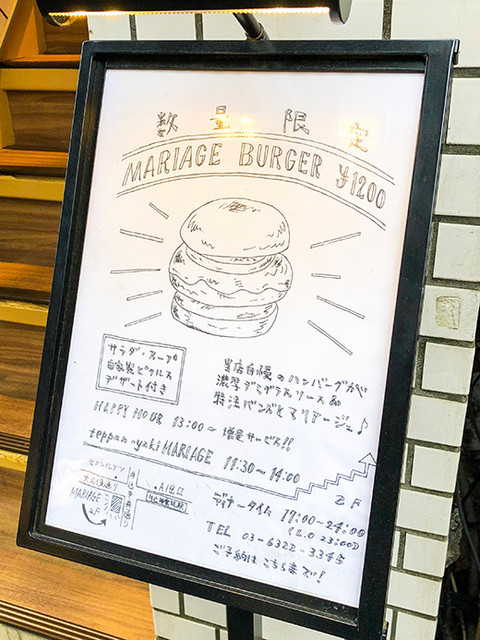 数量限定
MARIAGE BURGER ¥1200
サラダ・スープ
自家製ピクルス
デザート付き
当店自慢のハンバーグが
濃厚デミグラスソース&
特注バンズとマリアージュ♪
HAPPY HOUR 13:00~ 増量サービス!!
teppan-yaki MARIAGE 11:30~14:00
セブンイレブン
・A1出口
MARIAGE
2F
2F
ディナータイム 17:00~24:00
(L.O 23:00)
TEL 03-6322-
ご予約はこちらまで!